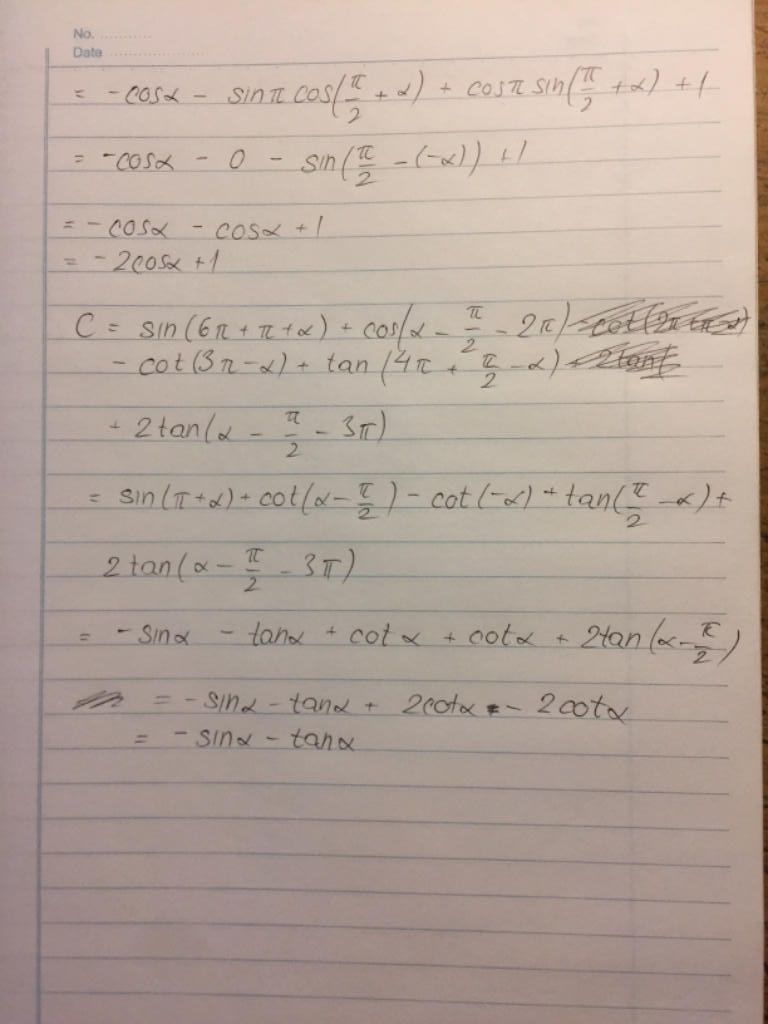 No. ............
Date ......................
= -cosα - sinπ cos(π/2 + α) + cosπ sin(π/2 + α) + 1
= -cosα - 0 - sin(π/2 - (-α)) + 1
= -cosα - cosα + 1
= -2cosα + 1
C = sin(6π + π + α) + cos(α - π/2 - 2π) - cot(2π + π - α)
- cot(3π - α) + tan(4π + π/2 - α) + 2tan(
+ 2tan(α - π/2 - 3π)
= sin(π+α) + cot(α - π/2) - cot(-α) + tan(π/2 - α) +
2tan(α - π/2 - 3π)
= -sinα - tanα + cotα + cotα + 2tan(α - π/2)
= -sinα - tanα + 2cotα - 2cotα
= -sinα - tanα